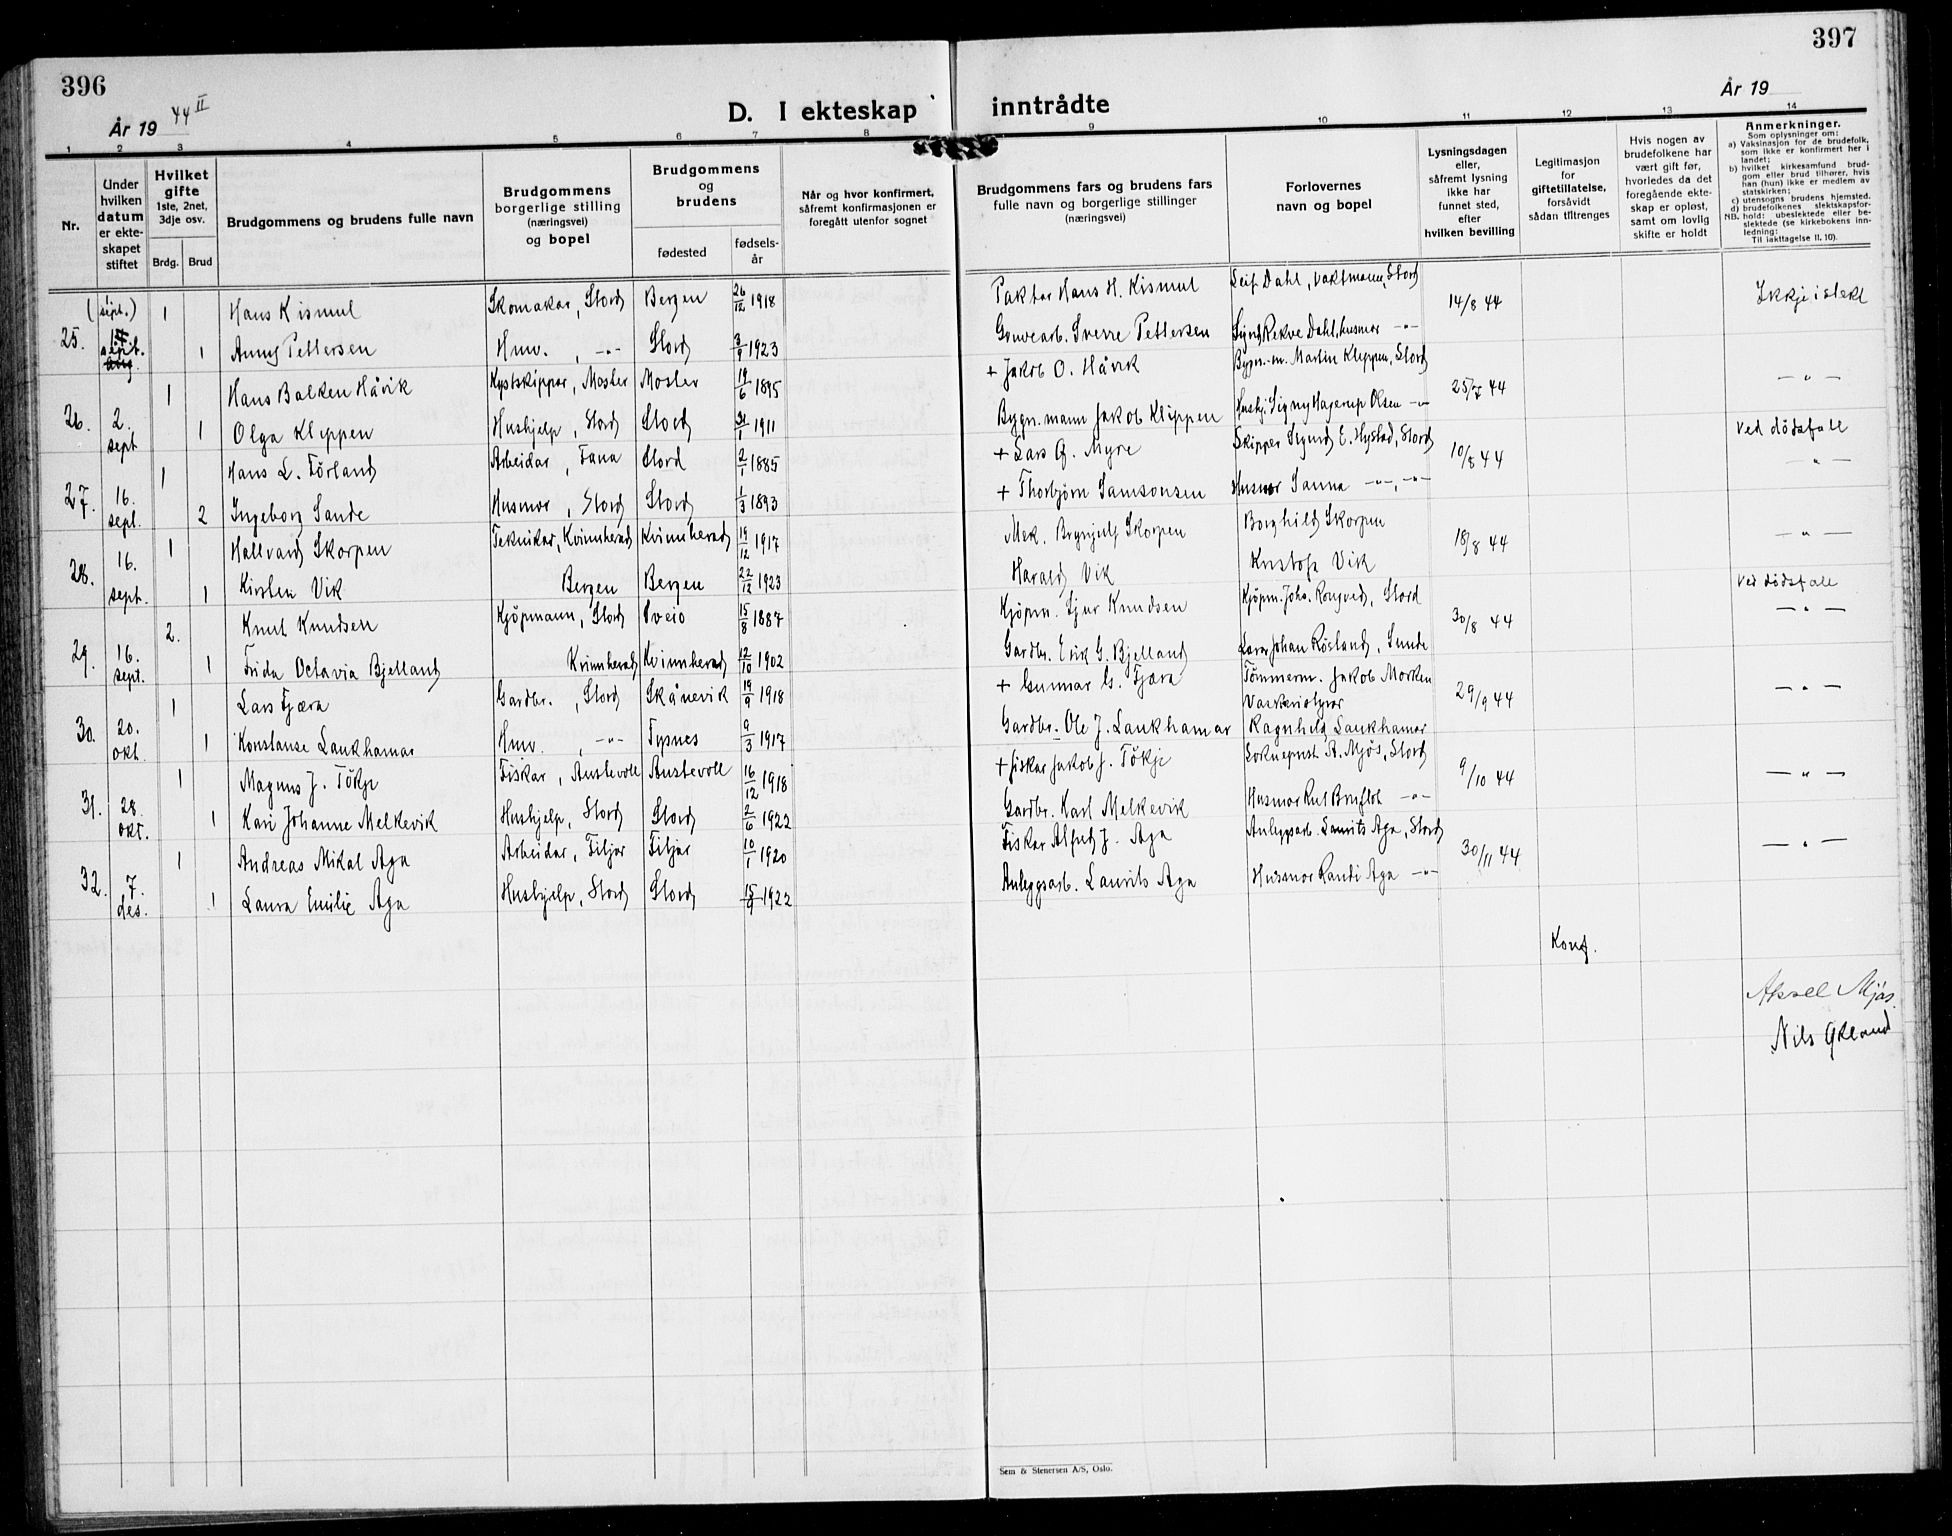 396
År 19 44 II
D. I ekteskap
1
2
3
4
5
6
7
8
Nr.
Under hvilken datum er ekteskapet stiftet
Hvilket gifte
1ste, 2net, 3dje osv.
Brdg.
Brud
Brudgommens og brudens fulle navn
Brudgommens borgerlige stilling (næringsvei) og bopel
Brudgommens og brudens
fødested
fødsels-år
Når og hvor konfirmert, såfremt konfirmasjonen er foregått utenfor sognet
(1 sept.) 1 Hans Kismul Skomakar, Stord Bergen 26/12 1918
25. sept. 1 Anny Pettersen Hmv. , -"- Stord 3/9 1923
1 Hans Bakken Håvik Kystskipper, Moster Moster 19/6 1895
26. 2. sept 1 Olga Kleppen Hushjelp, Stord Stord 1911
1 Hans L. Förland Arbeidar, Fana Stord 2/1 1885
27. 16. sept. 2 Ingeborg Sande Husmor, Stord Stord 1/3 1893
1 Hallvard Skorpen Teknikar, Kvinnherad Kvinnherad 19/12 1917
28. 16. sept. 1 Kirsten Vik Bergen Bergen 22/12 1923
2. Knut Knudsen Kjöpmann, Stord Sveio 15/8 1887
29. 16. sept. 1 Frida Octavia Bjelland Kvinnherad Kvinnherad 12/10 1902
1 Lars Fjæra Gardbr. , Stord Skånevik 19/9 1918
30. 20. okt. 1 Konstanse Laukhamar Hmv. , -"- Tysnes 9/3 1917
1 Magnus J. Tökje Fiskar, Austevoll Austevoll 16/12 1918
31. 28. okt. 1 Kari Johanne Melkevik Hushjelp, Stord Stord 2/6 1922
1 Andreas Mikal Aga Arbeidar, Fitjar Fitjar 10/1 1920
32. 7. des. 1 Laura Emilie Aga Hushjelp, Stord Stord 15/9 1922
397
År 19
inntrådte
9
10
11
12
13
14
Brudgommens fars og brudens fars fulle navn og borgerlige stillinger (næringsvei)
Forlovernes navn og bopel
Lysningsdagen eller, såfremt lysning ikke har funnet sted, efter hvilken bevilling
Legitimasjon for giftetillatelse, forsåvidt sådan tiltrenges
Hvis nogen av brudefolkene har vært gift før, hvorledes da det foregående ekteskap er opløst, samt om lovlig skifte er holdt
Anmerkninger.
Som oplysninger om:
a) Vaksinasjon for de brudefolk, som ikke er konfirmert her i landet;
b) hvilket kirkesamfund brudgom eller brud tilhører, hvis han (hun) ikke er medlem av statskirken;
c) utensogns brudens hjemsted.
d) brudefolkenes slektskapsforhold: ubeslektede eller beslektede (se kirkebokens innledning:
NB.
Til iakttagelse II, 10).
Paktar Hans H. Kismul Leif Dahl, vaktmann, Stord 14/8 44 Ikkje i slekt
Gruvearb. Sverre Pettersen Signy Rekve Dahl, husmor -"-
+ Jakob O. Håvik Bygn.m. Martin Kleppen, Stord 25/7 44 -"-
Bygn.mann Jakob Kleppen Hushj. Signy Hagerup Olsen -"-
+ Lars Myre Skipper Sigurd E. Hystad, Stord 10/8 44 Ved dödsfall -"-
+ Thorbjörn Samsonsen Husmor Sanna -"-, -"-
Mek. Brynjulf Skorpen Borghild Skorpen 18/8 44 -"-
Harald Vik Kristofa Vik
Kjöpm. Sjur Knudsen Kjöpm. Johs. Rongved, Stord 30/8 44 Ved dödsfall -"-
Gardbr. Erik G. Bjelland Johan Rösland, Sunde
+ Gunnar G. Fjæra Tömmerm. Jakob Morken 29/9 44 -"-
Gardbr. Ole J. Laukhamar Ragnhild Laukhamar
+ fiskar Jakob J. Tökje Sokneprest A. Mjös, Stord 9/10 44 -"-
Gardbr. Karl Melkevik Husmor Rut Brufloh -"-
Fiskar Alfred J. Aga Anleggsarb. Laurits Aga, Stord 30/11 44 -"-
Anleggsarb. Laurits Aga Husmor Randi Aga -"-
Konf.
Aksel Mjös.
Nils Økland
Sem & Stenersen A/S, Oslo.